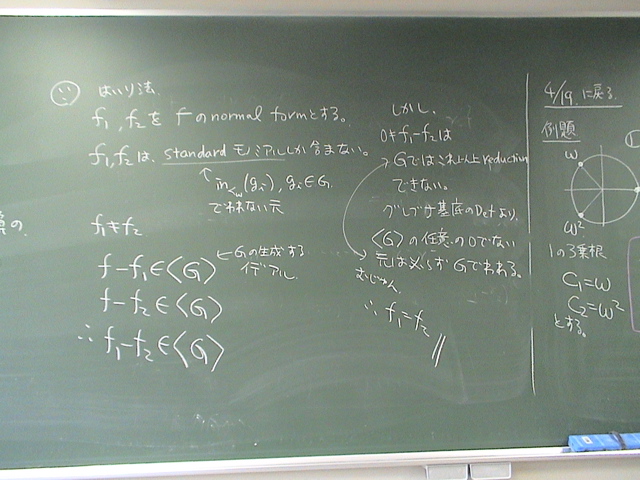 はいり法.
f₁, f₂ を f の normal form とする。
f₁, f₂ は、standard モノミアルしか含まない。
↑
in<w (gᵢ), gᵢ∈G
でわれない元
f₁≠f₂
f-f₁∈〈G〉 ←Gの生成する
イデアル。
f-f₂∈〈G〉
∴ f₁-f₂∈〈G〉
の.
しかし、
0≠f₁-f₂は
Gではこれ以上reduction
できない。
グレブナ基底のDefより、
〈G〉の任意の0でない
元は必らずGでわれる。
むじゅん
∴ f₁=f₂ //
4/19. に戻る.
例題
ω
ω²
1の3乗根
C₁=ω
C₂=ω²
とする。